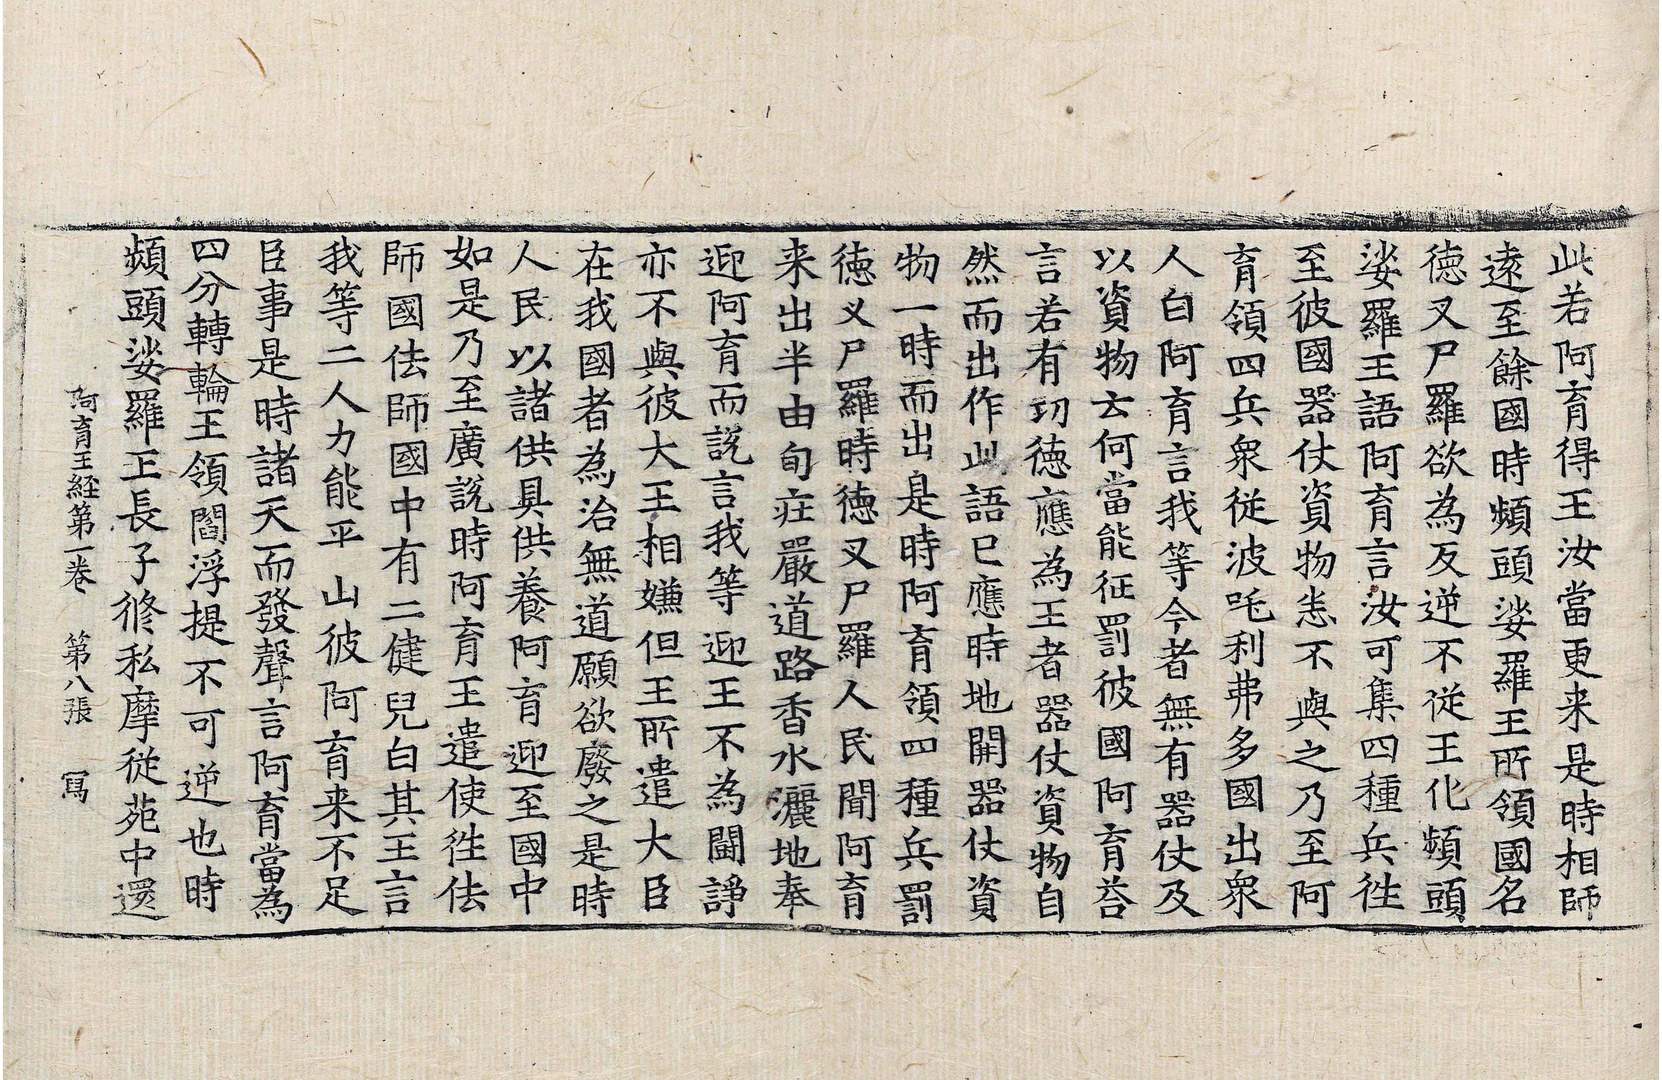 此若阿育得王汝當更来是時相師
遠至餘國時頻頭娑羅王所領國名
徳叉尸羅欲為反逆不従王化頻頭
娑羅王語阿育言汝可集四種兵徃
至彼國器仗資物悉不與之乃至阿
育領四兵衆従波吒利弗多國出衆
人白阿育言我等今者無有器仗及
以資物云何當能征罰彼國阿育荅
言若有功徳應為王者器仗資物自
然而出作此語已應時地開器仗資
物一時而出是時阿育領四種兵罰
徳叉尸羅時徳叉尸羅人民聞阿育
来出半由旬莊嚴道路香水灑地奉
迎阿育而說言我等迎王不為闘諍
亦不與彼大王相嫌但王所遣大臣
在我國者為治無道願欲廢之是時
人民以諸供具供養阿育迎至國中
如是乃至廣說時阿育王遣使徃佉
師國佉師國中有二健兒白其王言
我等二人力能平山彼阿育来不足
臣事是時諸天而發聲言阿育當為
四分轉輪王領閻浮提不可逆也時
頻頭娑羅王長子修私摩従苑中還
阿育王経第一卷 第八張 寫